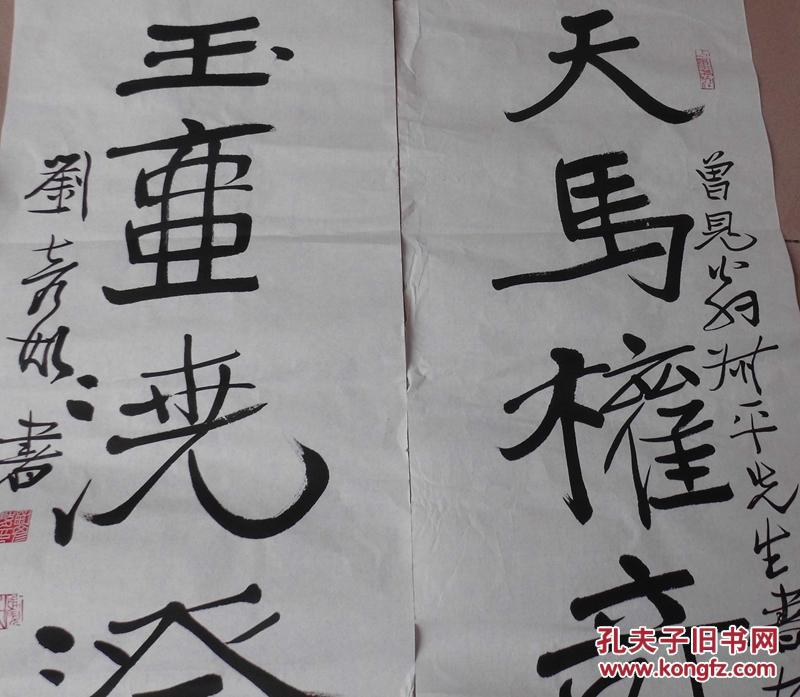 天馬權
曾見翁叔平先生書
玉壺澆
劉書
孔夫子旧书网
www.kongfz.com